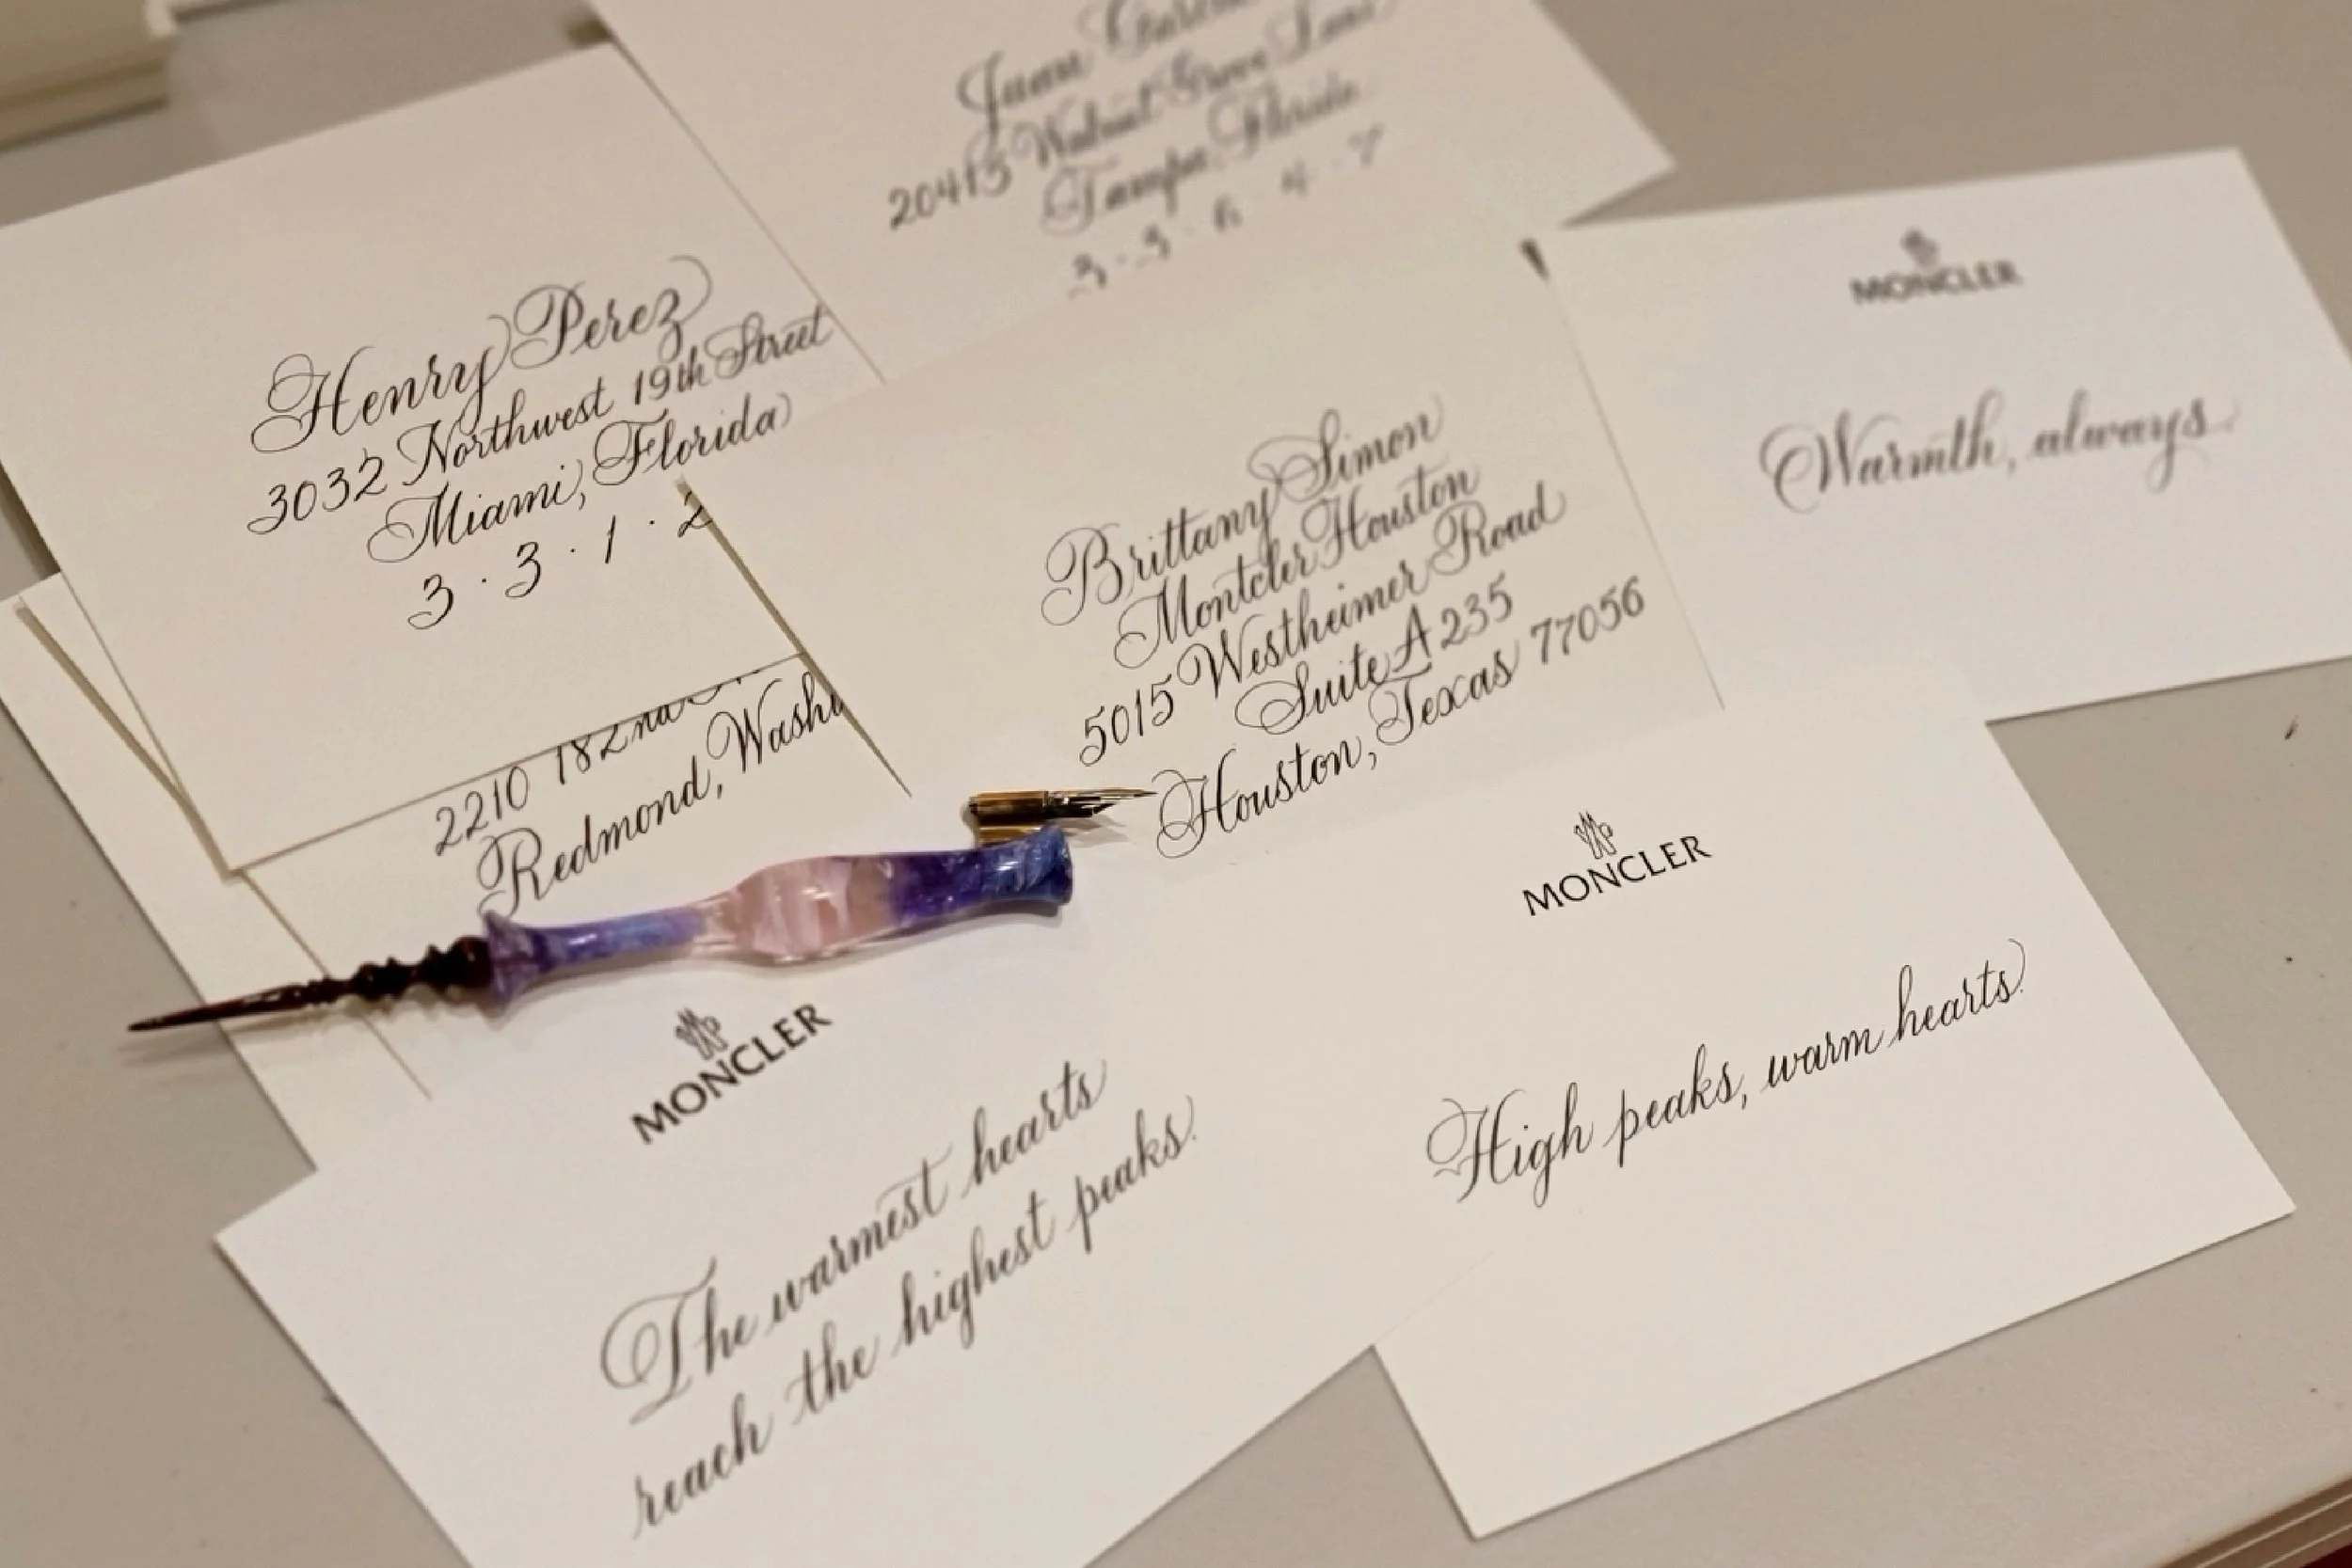 Juan
20415 Walnut Grove Lane
Tampa, Florida
3 · 3 · 6 4 · 7
Henry Perez
3032 Northwest 19th Street
Miami, Florida
3 · 3 · 1 · 2
2210 182nd
Redmond,
Brittany Simon
Montcler Houston
5015 Westheimer Road
Suite A 235
Houston, Texas 77056
MONCLER
Warmth, always.
MONCLER
The warmest hearts
reach the highest peaks.
MONCLER
High peaks, warm hearts.